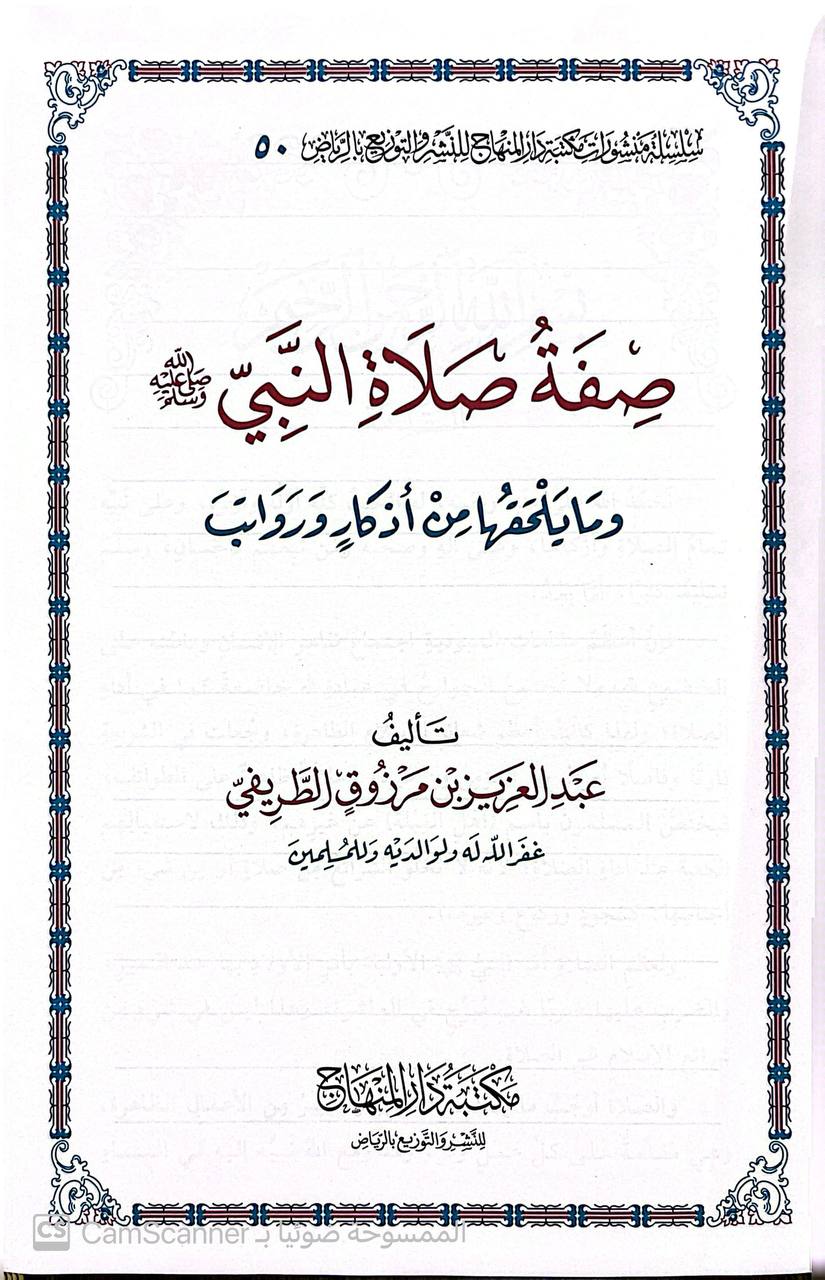 سلسلة منشورات مكتبة دار المنهاج للنشر والتوزيع بالرياض ٥٠
صِفَةُ صَلَاةِ النَّبِيِّ ﷺ
وَمَا يَلْحَقُهَا مِنْ أَذْكَارٍ وَرَوَاتِبَ
تَأليفُ
عَبْدِ العَزِيزِ بْنِ مَرْزُوقٍ الطَّرِيفِيِّ
غفر الله له ولوالديه وللمسلمين
مكتبة دار المنهاج
للنشر والتوزيع بالرياض
الممسوحة ضوئيا بـ CamScanner
CS